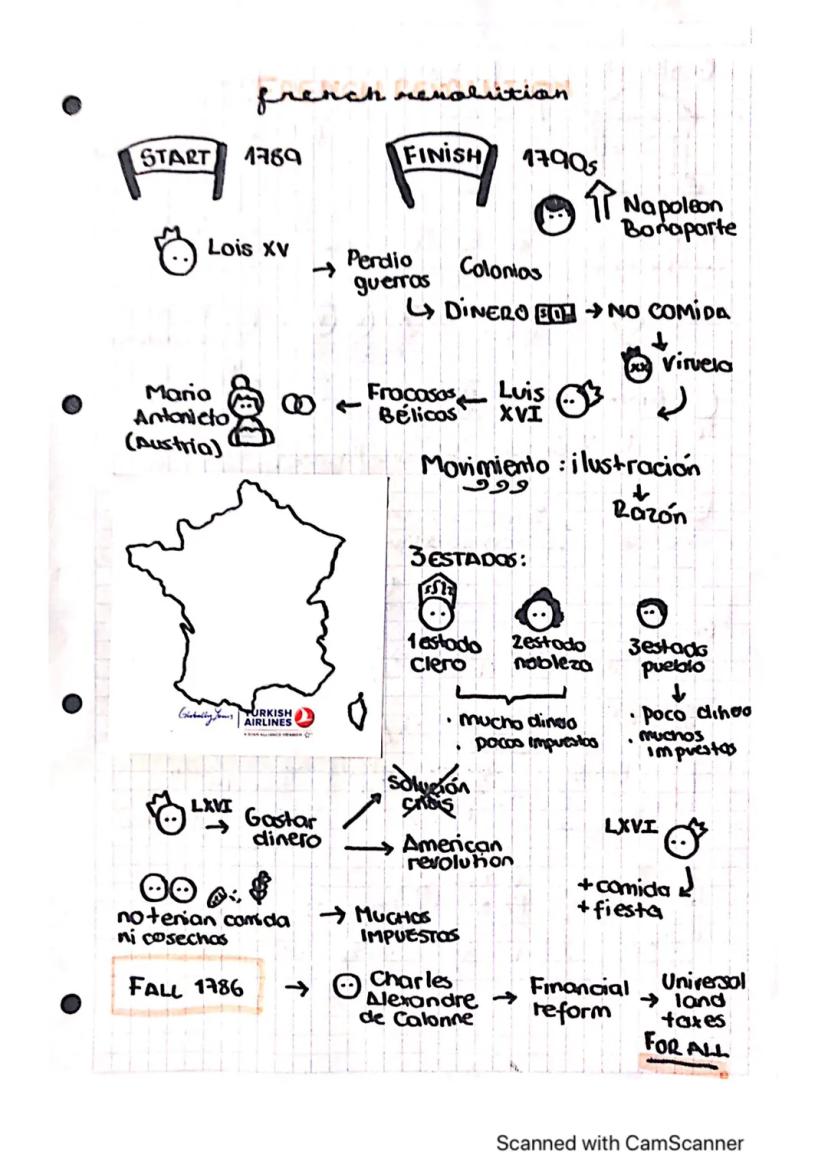 french revolution
START 1789 FINISH 1790s
Napoleon
Bonaparte
Lois XV
→ Perdio
guerras
Colonias
↳ DINERO → NO COMIDA
↓
Viruela
Luis
XVI
← Fracasos
Bélicos
←
Maria
Antonieta
(Austria)
Movimiento : ilustración
↓
Razón
3 ESTADOS:
1 estado
clero
2 estado
nobleza
3 estado
pueblo
· mucho dinero
· pocos impuestos
↓
· poco dinero
· muchos
impuestos
Globally Yours
TURKISH
AIRLINES
A STAR ALLIANCE MEMBER
LXVI
→ Gastar
dinero
Solución
crisis
→ American
revolution
LXVI
+ comida
+ fiesta
no tenian comida
ni cosechas
→ MUCHOS
IMPUESTOS
FALL 1786 →
Charles
Alexandre
de Calonne
→ Financial
reform
→ Universal
land
taxes
FOR ALL
Scanned with CamScanner